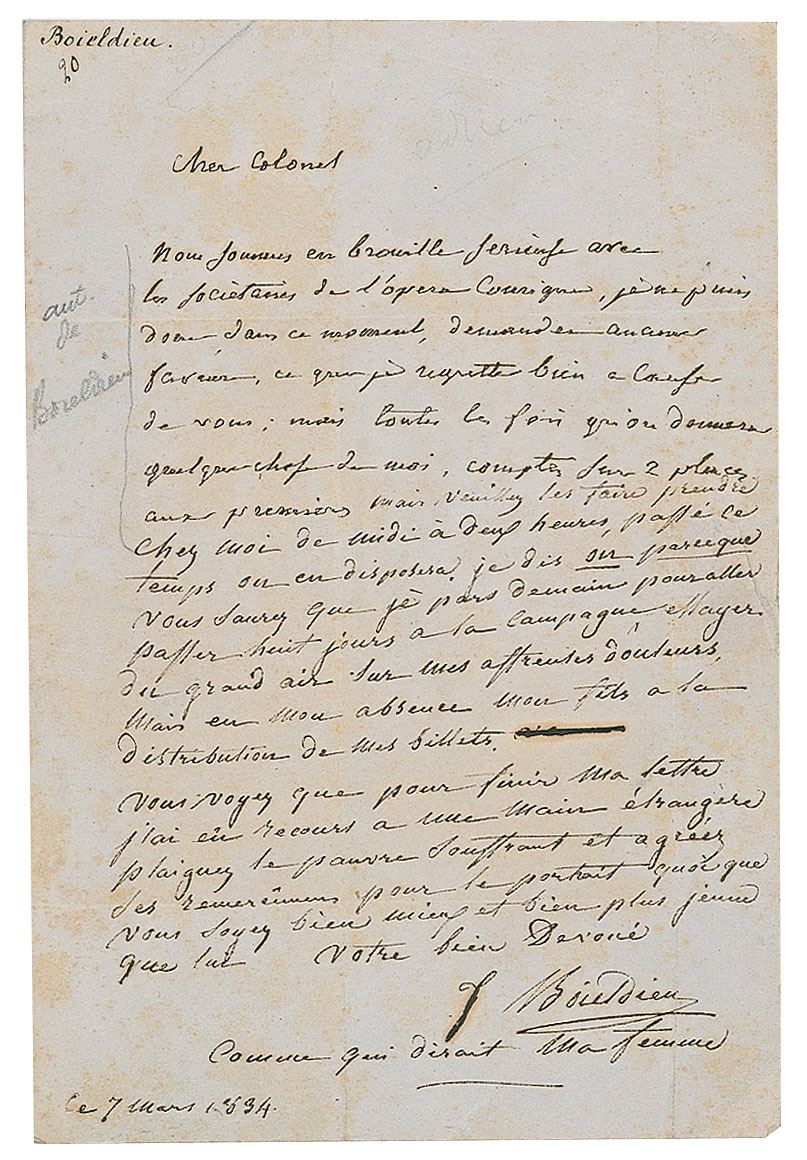 Boieldieu.
20
adrien
cher Colonel
aut.
de
Boieldieu
Nous sommes en brouille serieuse avec
les sociétaires de l'opera Comique, je ne puis
donc dans ce moment, demander aucune
faveur, ce que je regrette bien a cause
de vous; mais toutes les fois qu'on donnera
quelque chose de moi, comptes sur 2 places
aux premieres mais veuillez les faire prendre
chez moi de midi à deux heures, passé ce
temps on en disposera, je dis on parceque
vous saurez que je pars demain pour aller
passer huit jours a la campagne essayer
du grand air sur mes affreuses douleurs,
Mais en mon absence mon fils a la
distribution de mes billets.
vous voyez que pour finir ma lettre
j'ai eu recours a une main étrangère
plaignez le pauvre souffrant et agréez
ses remercimens pour le portrait quoi que
vous soyez bien mieux et bien plus jeune
que lui Votre bien Devoué
Boieldieu
Comme qui dirait Ma femme
Ce 7 Mars 1834.